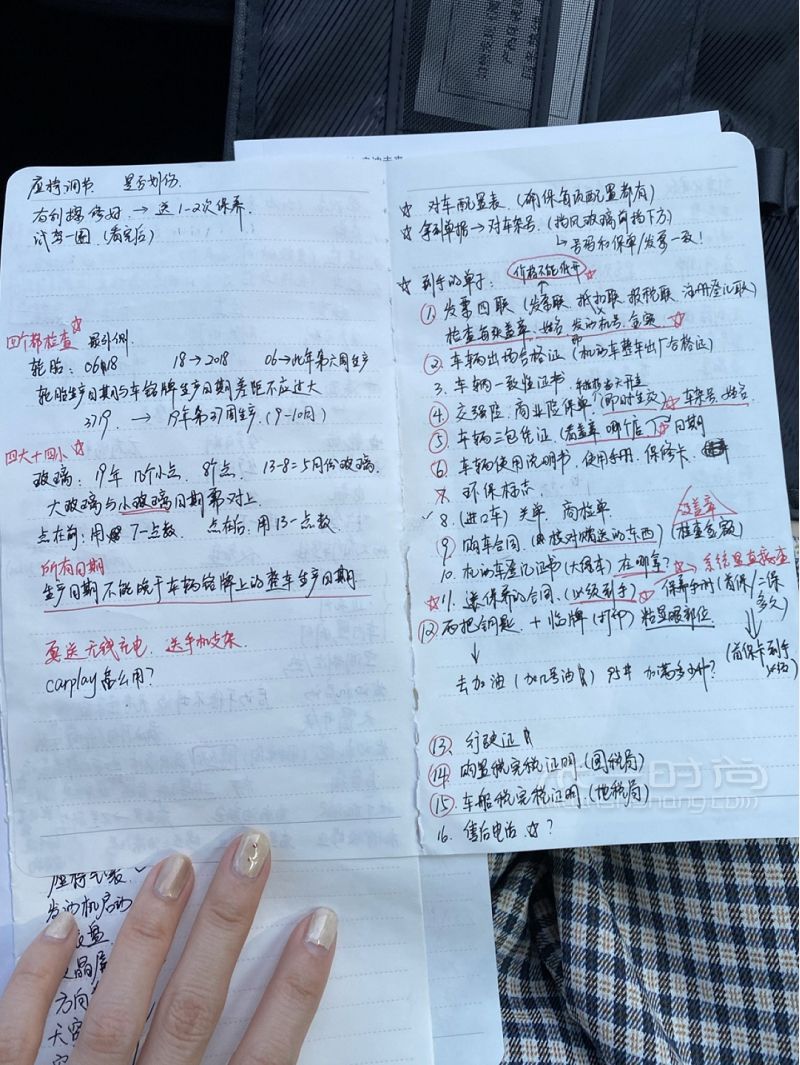 座椅调节 是否划伤.
右剐擦修好 → 送1-2次保养.
试驾一圈 (看完后)
四个都检查☆
轮胎: 0618 18→2018 06→此年第六周生产
轮胎生产日期与车铭牌生产日期差距不应过大
3719. → 19年第37周生产. (9-10月)
四大十四小☆
玻璃: 19年 8个点. 13-8=5月份玻璃.
大玻璃与小玻璃日期需对上.
点在前: 用 7-点数. 点在后: 用13-点数.
所有日期
生产日期不能晚于车辆铭牌上的整车生产日期.
要送无线充电. 送手机支架.
carplay怎么用?
☆ 对车配置表. (确保每项配置都有)
☆ 拿到单据→对车架号. (挡风玻璃前挡下方)
↳ 号码和保单/发票一致!
☆ 到手的单子: 价格不能低开☆
① 发票四联 (发票联. 抵扣联. 报税联. 注册登记联)
检查每张盖章. 姓名 发动机号. 金额. ☆
②. 车辆出场合格证 (机动车整车出厂合格证)
3. 车辆一致性证书.
④ 交强险. 商业险保单. (即时生效) ☆ 车架号. 姓名
⑤ 车辆三包凭证. (看盖章 哪个店) 日期
⑥. 车辆使用说明书. 使用手册. 保修卡.
7. 环保标志.
✓ 8. (进口车) 关单. 商检单. 没盖章
⑨ 购车合同. (核对赠送的东西) (检查金额)
10. 机动车登记证书 (大绿本) 在哪拿? ☆ 系统里直接查
☆ 11. 送保养的合同. (必须到手) ☆ 保养手册 (首保/二保
多久)
⑫ 两把钥匙. + 临牌 (打印) 粘显眼部位.
(首保卡到手
去加油 (加几号油) 95# 加满多少升?
⑬. 行驶证
⑭. 购置税完税证明. (国税局)
⑮. 车船税完税证明. (地税局)
16. 售后电话 ☆?
座椅
发动机启动
方向